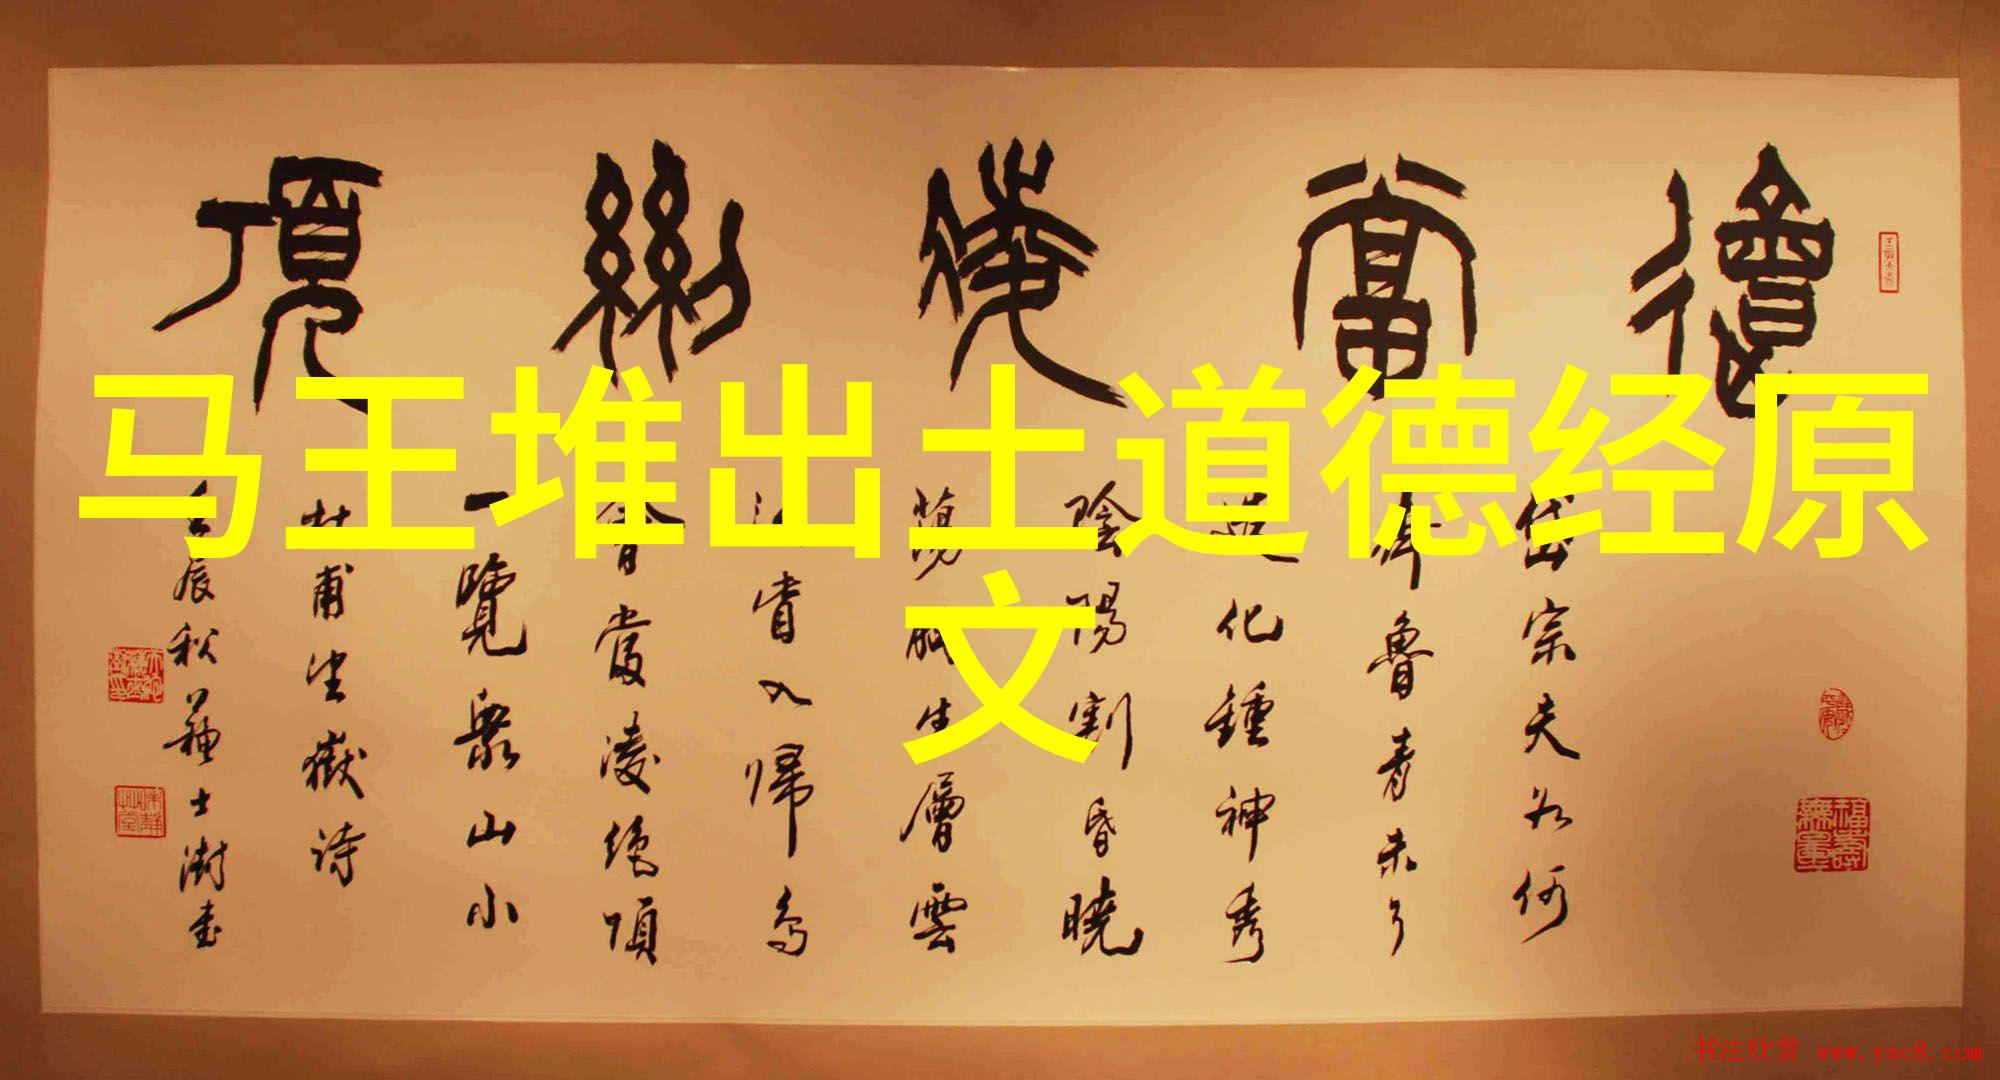 會當凌絕頂
马王堆出土道德经原
文
岱宗夫如何
齊魯青未了
造化鍾神秀
陰陽割昏曉
蕩胸生層雲
決眥入歸鳥
會當凌絕頂
一覽眾山小
杜甫望嶽詩
壬辰秋蘇士澍書
福壽無量
书法欣赏 www.yac8.com